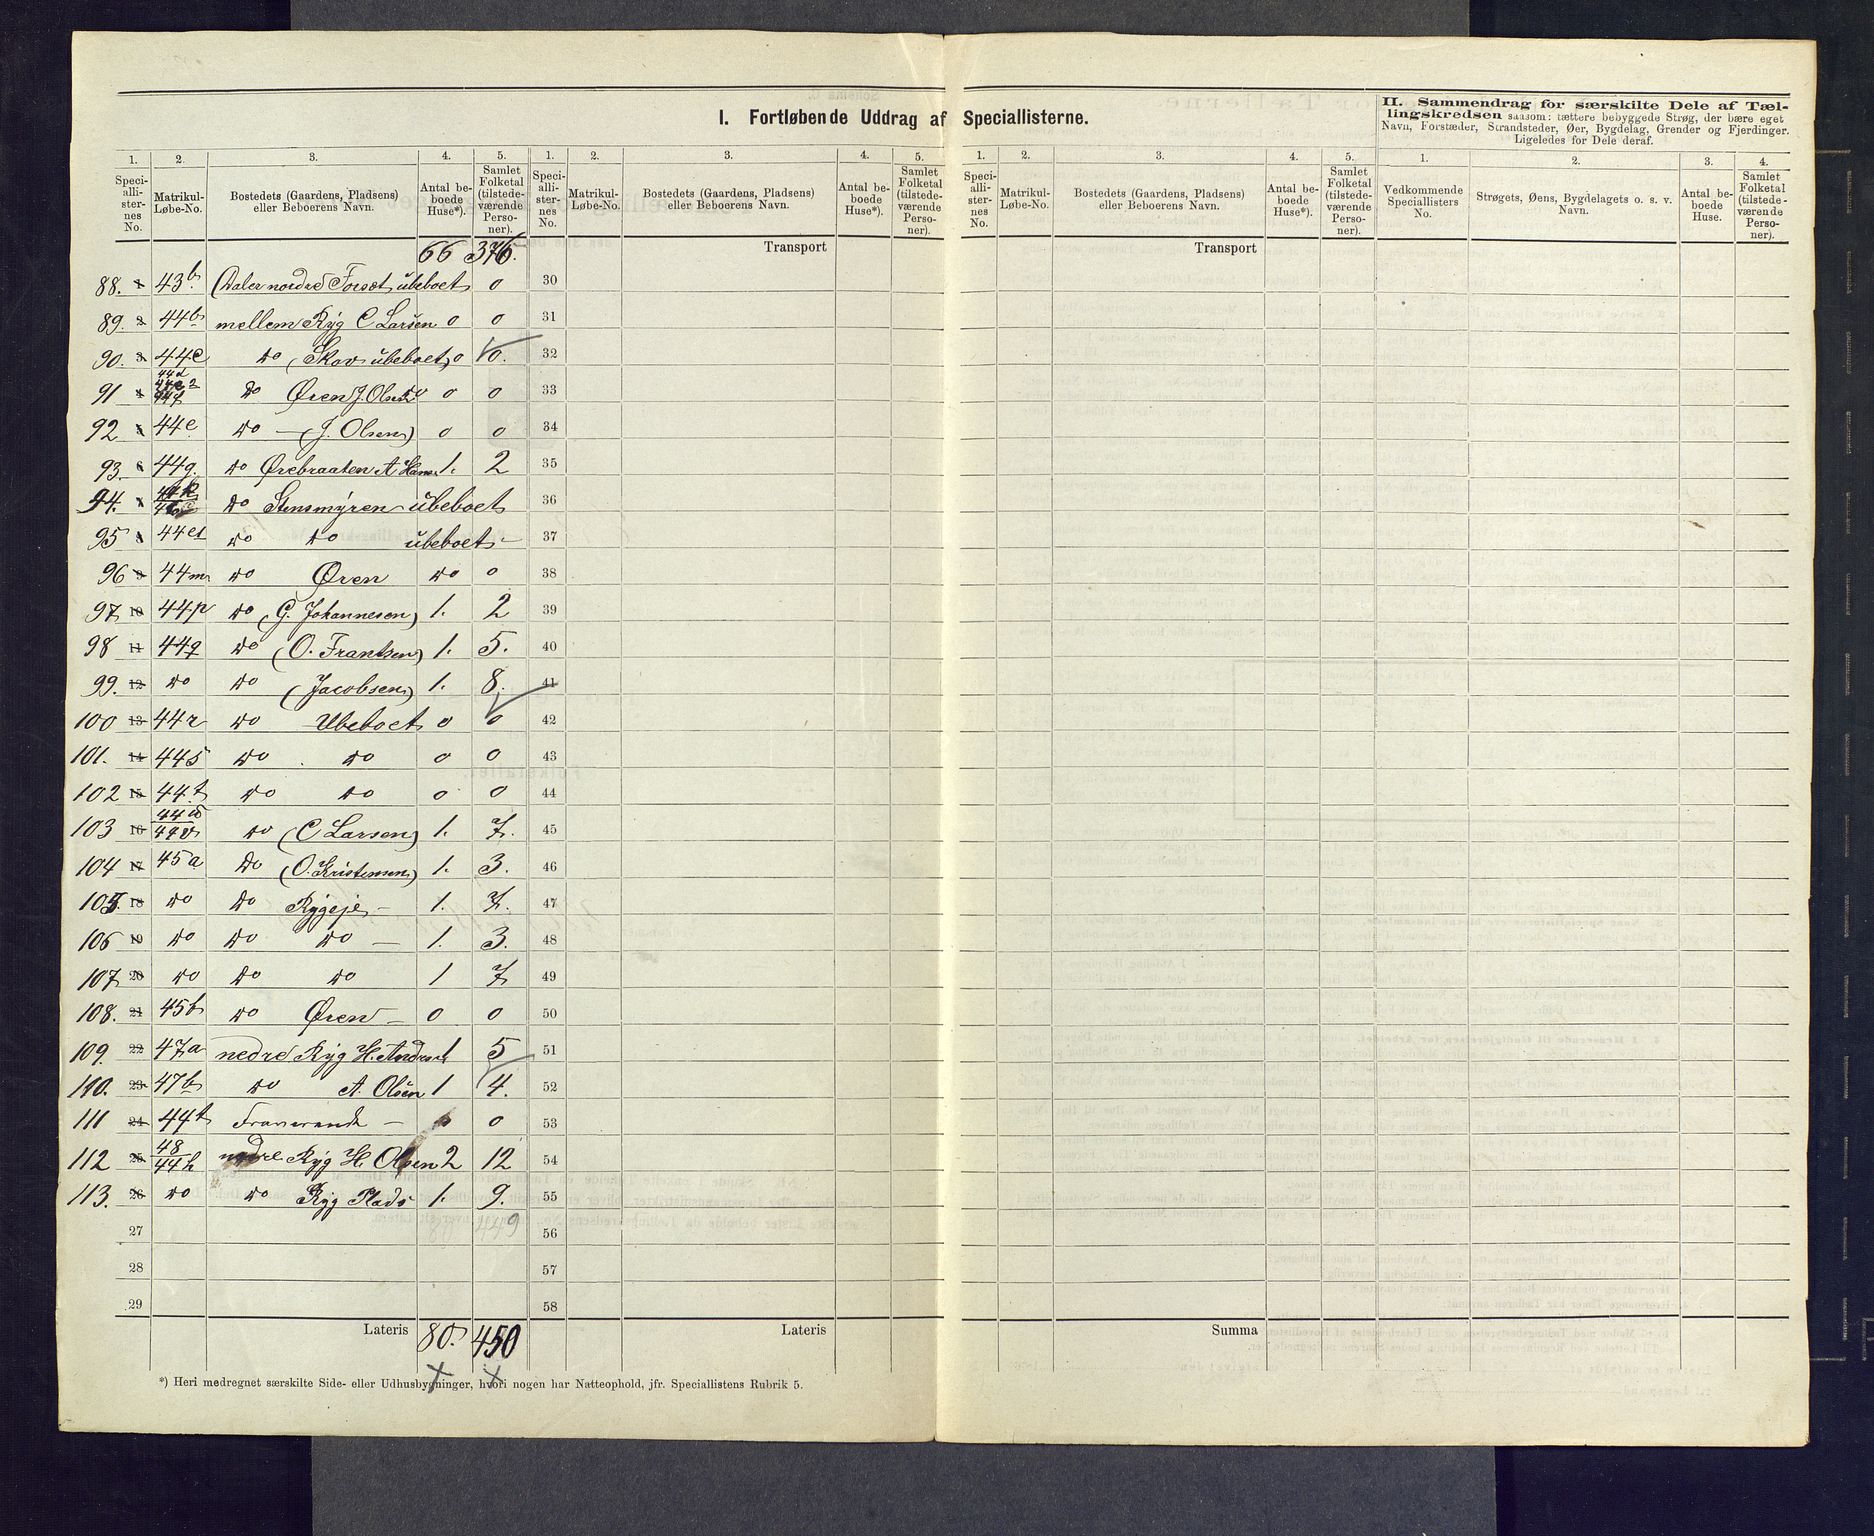 I. Fortløbende Uddrag af Speciallisterne.
II. Sammendrag for særskilte Dele af Tællingskredsen saasom: tættere bebyggede Strøg, der bære eget
Navn, Forstæder, Strandsteder, Øer, Bygdelag, Grender og Fjerdinger.
Ligeledes for Dele deraf.
1. 2. 3. 4. 5. 1. 2. 3. 4. 5. 1. 2. 3. 4. 5. 1. 2. 3. 4.
Speciallisternes No. Matrikul-Løbe-No. Bostedets (Gaardens, Pladsens) eller Beboerens Navn. Antal beboede Huse*). Samlet Folketal (tilstedeværende Personer).
Speciallisternes No. Matrikul-Løbe-No. Bostedets (Gaardens, Pladsens) eller Beboerens Navn. Antal beboede Huse*). Samlet Folketal (tilstedeværende Personer).
Speciallisternes No. Matrikul-Løbe-No. Bostedets (Gaardens, Pladsens) eller Beboerens Navn. Antal beboede Huse*). Samlet Folketal (tilstedeværende Personer).
Vedkommende Speciallisters No. Strøgets, Øens, Bygdelagets o. s. v. Navn. Antal beboede Huse. Samlet Folketal (tilstedeværende Personer).
66 376. Transport Transport
88. 1 43b. Dalen nordre Forsæt ubeboet 0 30
89. 2 44b mellem Ryg C Larsen 0 0 31
90. 3 44c do (Skov ubeboet) 0 0. 32
91 4 44d do Øren J. Olsen 0 0 33
92 5 44e do — (J. Olsen) 0 0 34
93. 6 44g. do Ørebraaten A Hans. 1. 2 35
94. 7 do Stensmyren ubeboet 36
95 8 do do ubeboet - 37
96 9 44m do Øren do 0 38
97 10 44p do (G. Johannesen) 1. 2 39
98 11 44q do (O. Frantsen) 1. 5. 40
99. 12 do do (Jacobsen) 1. 8. 41
100 13 44r do Ubeboet 0 0 42
101. 14 44s do do 0 0 43
102 15 44t do do 0 0 44
103 16 44v do (C Larsen) 1. 7. 45
104 17 45a do (O. Kristensen) 1. 3. 46
105. 18 do do Rygeje - 1. 7. 47
106 19 do do do — 1. 3. 48
107 20 do do do 1 7 49
108. 21 45b do Øren — 0 0 50
109. 22 47a nedre Ryg H. Anders. 1 5 51
110. 23 47b do A. Olsen 1 4. 52
111 24 44t Fraværende - 0 0 53
112 25 48 44h nedre Ryg H. Olsen 2 12 54
113. 26 do do Ryg Plads 1. 9. 55
27 80 449 56
28 57
29 58
Lateris 80. 450 Lateris Summa
*) Heri medregnet særskilte Side- eller Udhusbygninger, hvori nogen har Natteophold, jfr. Speciallistens Rubrik 5.